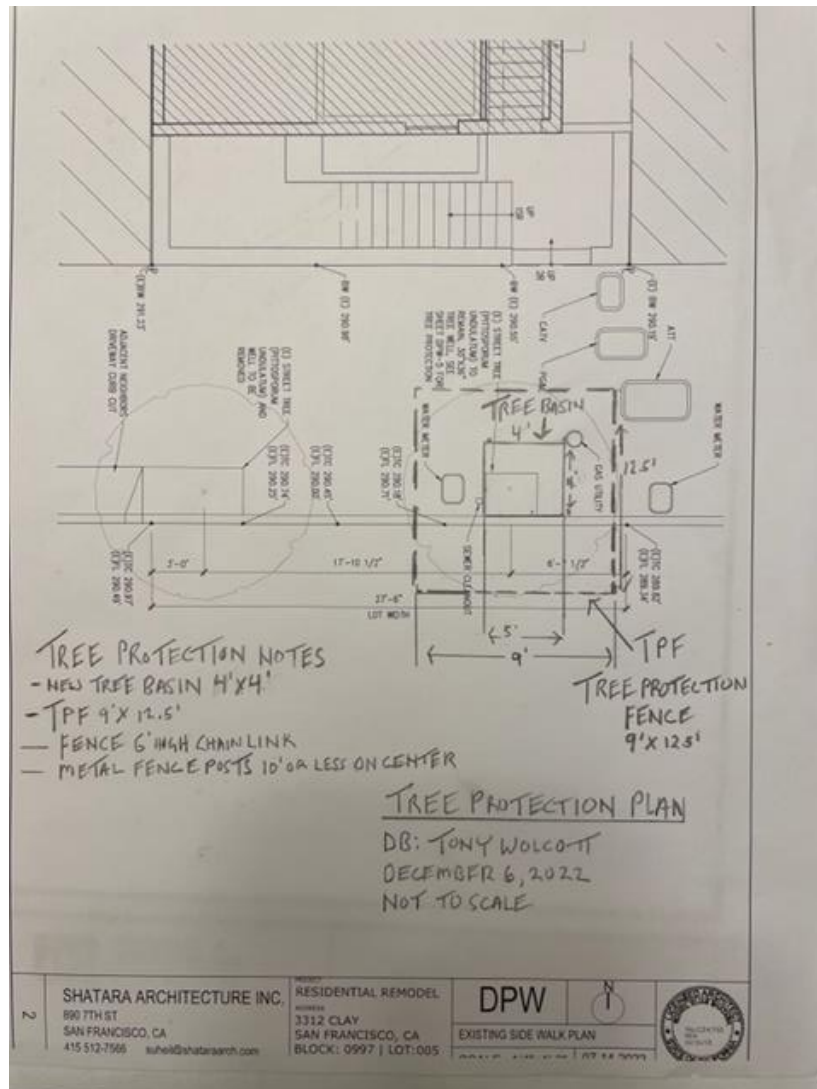 UP
15R
UP
2R
(E)BW 291.33'
BW (E) 290.98'
BW (E) 290.50'
(E) BW 290.15'
ADJACENT NEIGHBORS
DRIVEWAY CURB CUT
(E) STREET TREE
(PITTOSPORUM
UNDULATUM) AND
WELL TO BE
REMOVED
(E) STREET TREE
(PITTOSPORUM
UNDULATUM) TO
REMAIN, 30"X36"
TREE WELL, SEE
SHEET DPW-5 FOR
TREE PROTECTION
CATV
PG&E
ATT
WATER METER
WATER METER
TREE BASIN
4'
GAS UTILITY
12.5'
SEWER CLEANOUT
(E)TC 290.97'
(E)FL 290.49'
(E)TC 290.74'
(E)FL 290.25'
(E)TC 290.45'
(E)FL 290.00'
(E)TC 290.18'
(E)FL
(E)TC 289.82'
(E)FL 289.34'
17'-10 1/2"
LOT WIDTH
5'
9'
TPF
TREE PROTECTION
FENCE
9'X 12.5'
TREE PROTECTION NOTES
- NEW TREE BASIN 4'X4'
- TPF 9'X 12.5'
— FENCE 6' HIGH CHAINLINK
— METAL FENCE POSTS 10' OR LESS ON CENTER
TREE PROTECTION PLAN
DB: TONY WOLCOTT
DECEMBER 6, 2022
NOT TO SCALE
2
SHATARA ARCHITECTURE INC.
890 7TH ST
SAN FRANCISCO, CA
415 512-7566 suheil@shataraarch.com
RESIDENTIAL REMODEL
ADDRESS
3312 CLAY
SAN FRANCISCO, CA
BLOCK: 0997 | LOT:005
DPW
N
EXISTING SIDE WALK PLAN
LICENSED ARCHITECT